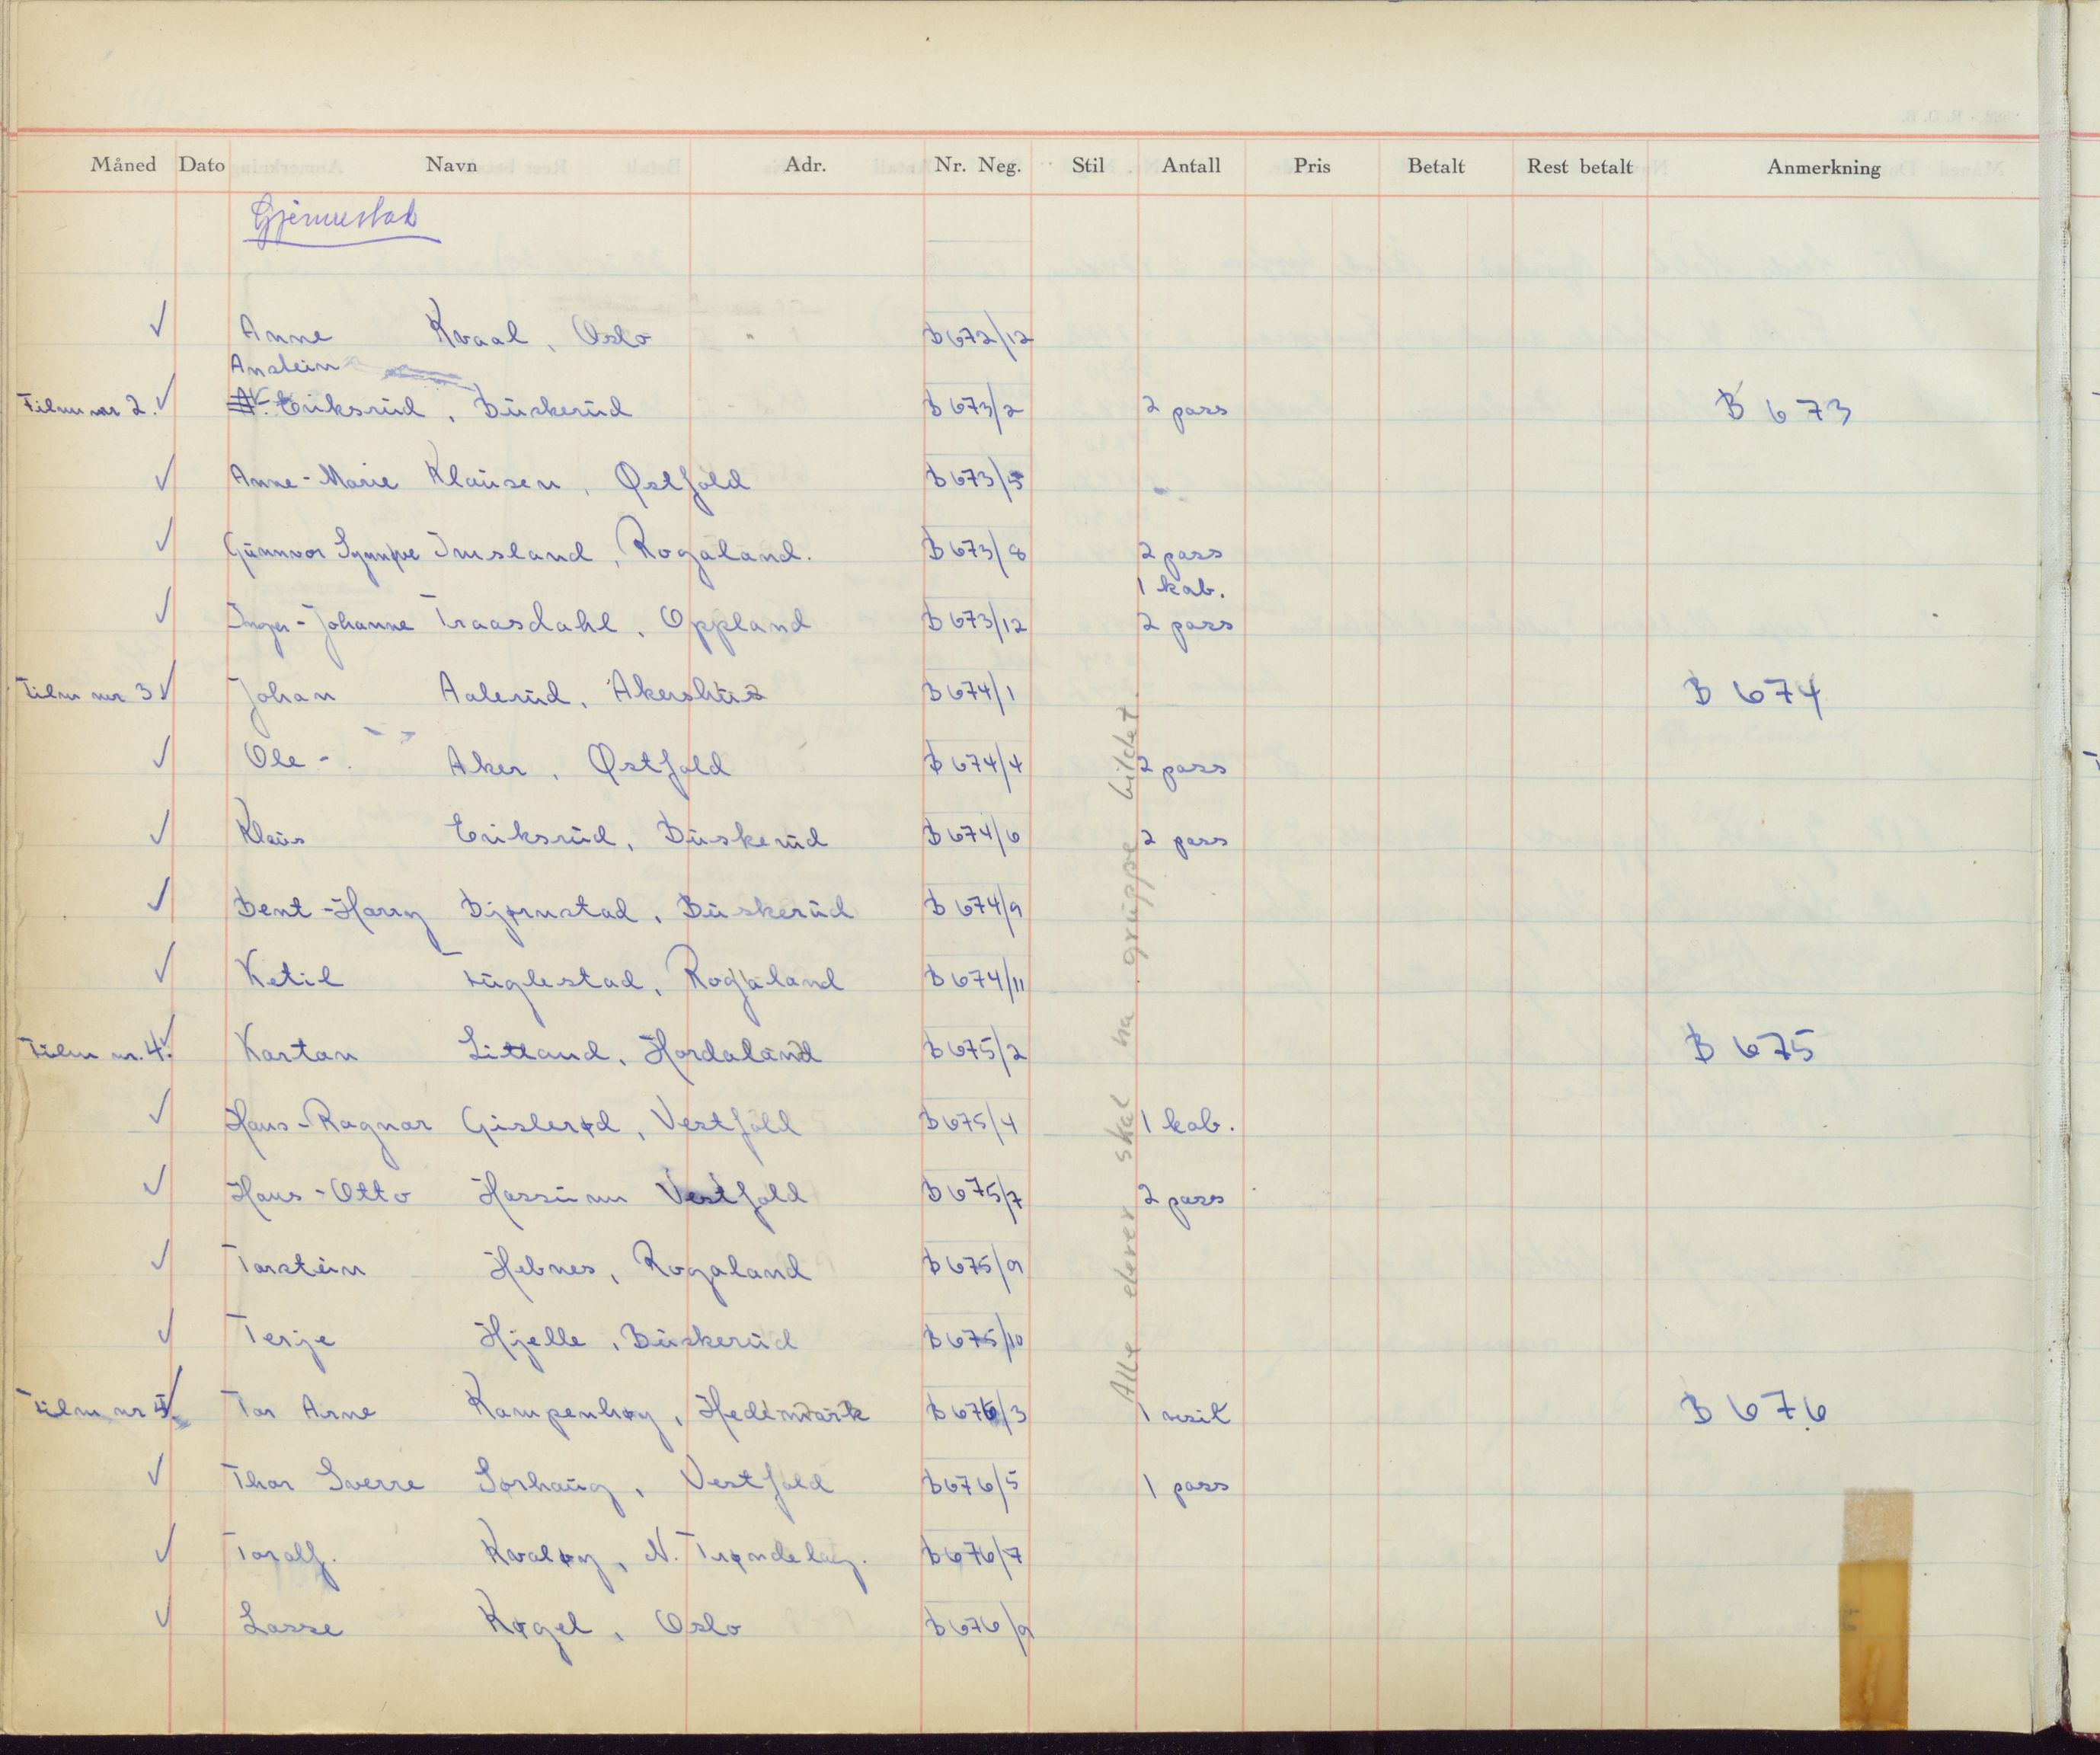 Måned Dato Navn Adr. Nr. Neg. Stil Antall Pris Betalt Rest betalt Anmerkning
Gjennestad
✓ Anne Kvaal, Oslo B672/12
Anstein
Film nr 2. ✓ Eriksrud, Buskerud B673/2 2 pass B 673
✓ Anne-Marie Klausen, Østfold B673/5
✓ Gunnvor Synnøve Imsland, Rogaland. B673/8 2 pass
1 kab.
✓ Inger-Johanne Traasdahl, Oppland B673/12 2 pass
Film nr 3 ✓ Johan Aalerud, Akershus B674/1 B 674
✓ Ole - Aker, Østfold B674/4 2 pass
✓ Klaus Eriksrud, Buskerud B674/6 2 pass
✓ Bent-Harry Bjørnstad, Buskerud B674/9
✓ Ketil Fuglestad, Rogaland B674/11
Film nr. 4. ✓ Kartan Litland, Hordaland B675/2 B 675
✓ Hans-Ragnar Gislerød, Vestfold B675/4 1 kab.
✓ Hans-Otto Hassum Vestfold B675/7 2 pass
✓ Torstein Hebnes, Rogaland B675/9
✓ Terje Hjelle, Buskerud B675/10
Film nr 5. ✓ Tor Arne Kampenhøy, Hedemark B676/3 1 visit B 676
✓ Thor Sverre Sørhaug, Vestfold B676/5 1 pass
✓ Toralf. Kvaløy, N. Trøndelag. B676/7
✓ Lasse Køgel, Oslo B676/9
Alle elever skal ha gruppe bildet.